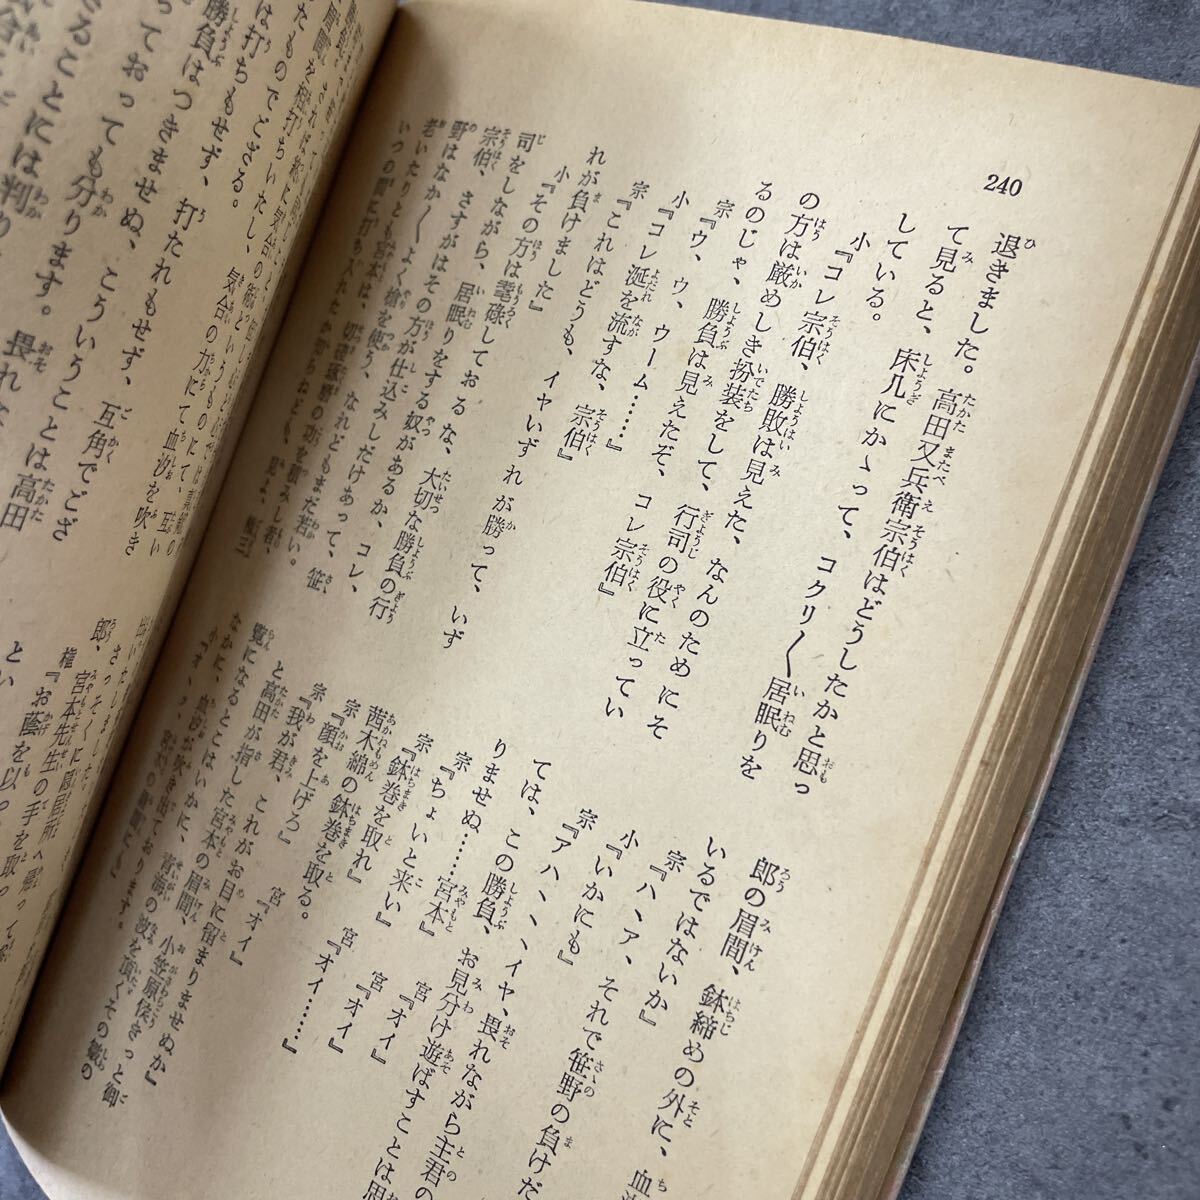 240
退きました。高田又兵衛宗伯はどうしたかと思っ
て見ると、床几にかゝって、コクリ〳〵居眠りを
している。
小『コレ宗伯、勝敗は見えた、なんのためにそ
の方は厳めしき扮装をして、行司の役に立ってい
るのじゃ、勝負は見えたぞ、コレ宗伯』
宗『ウ、ウ、ウーム……』
小『コレ涎を流すな、宗伯』
宗『これはどうも、イヤいずれが勝って、いず
れが負けました』
小『その方は耄碌しておるな、大切な勝負の行
司をしながら、居眠りをする奴があるか、コレ、
宗伯、さすがはその方が仕込みしだけあって、笹
野はなか〳〵よく槍を使う、なれどもまだ若い。
老いたりとも宮本は、切磋琢磨の功を積みし者、
いつの間に打ち入れたか知らねども、見よ、権三
郎の眉間、鉢締めの外に、血
いるではないか』
宗『ハヽア、それで笹野の負けだ
小『いかにも』
宗『アハヽヽヽイヤ、畏れながら主君の
ては、この勝負、お見分け遊ばすことは思
りませぬ……宮本』 宮『オイ』
宗『ちょいと来い』 宮『オイ』
宗『鉢巻を取れ』 宮『オイ……』
茜木綿の鉢巻を取る。
宗『顔を上げろ』 宮『オイ』
宗『我が君、これがお目に留まりませぬか』
と高田が指した宮本の眉間、小笠原侯きっと御
覧になるとこはいかに、青海の波を頂くその皺の
なかに、血汐が吹き出ております。
郎、さっそくに
権『お蔭を以
宮本先生の手を取って
は打ちもせず、打たれもせず、互角でござ
勝負はつきませぬ、こういうことは高田
っておっても分ります。畏れ
たものでござる。
気合の力にて血汐を吹き